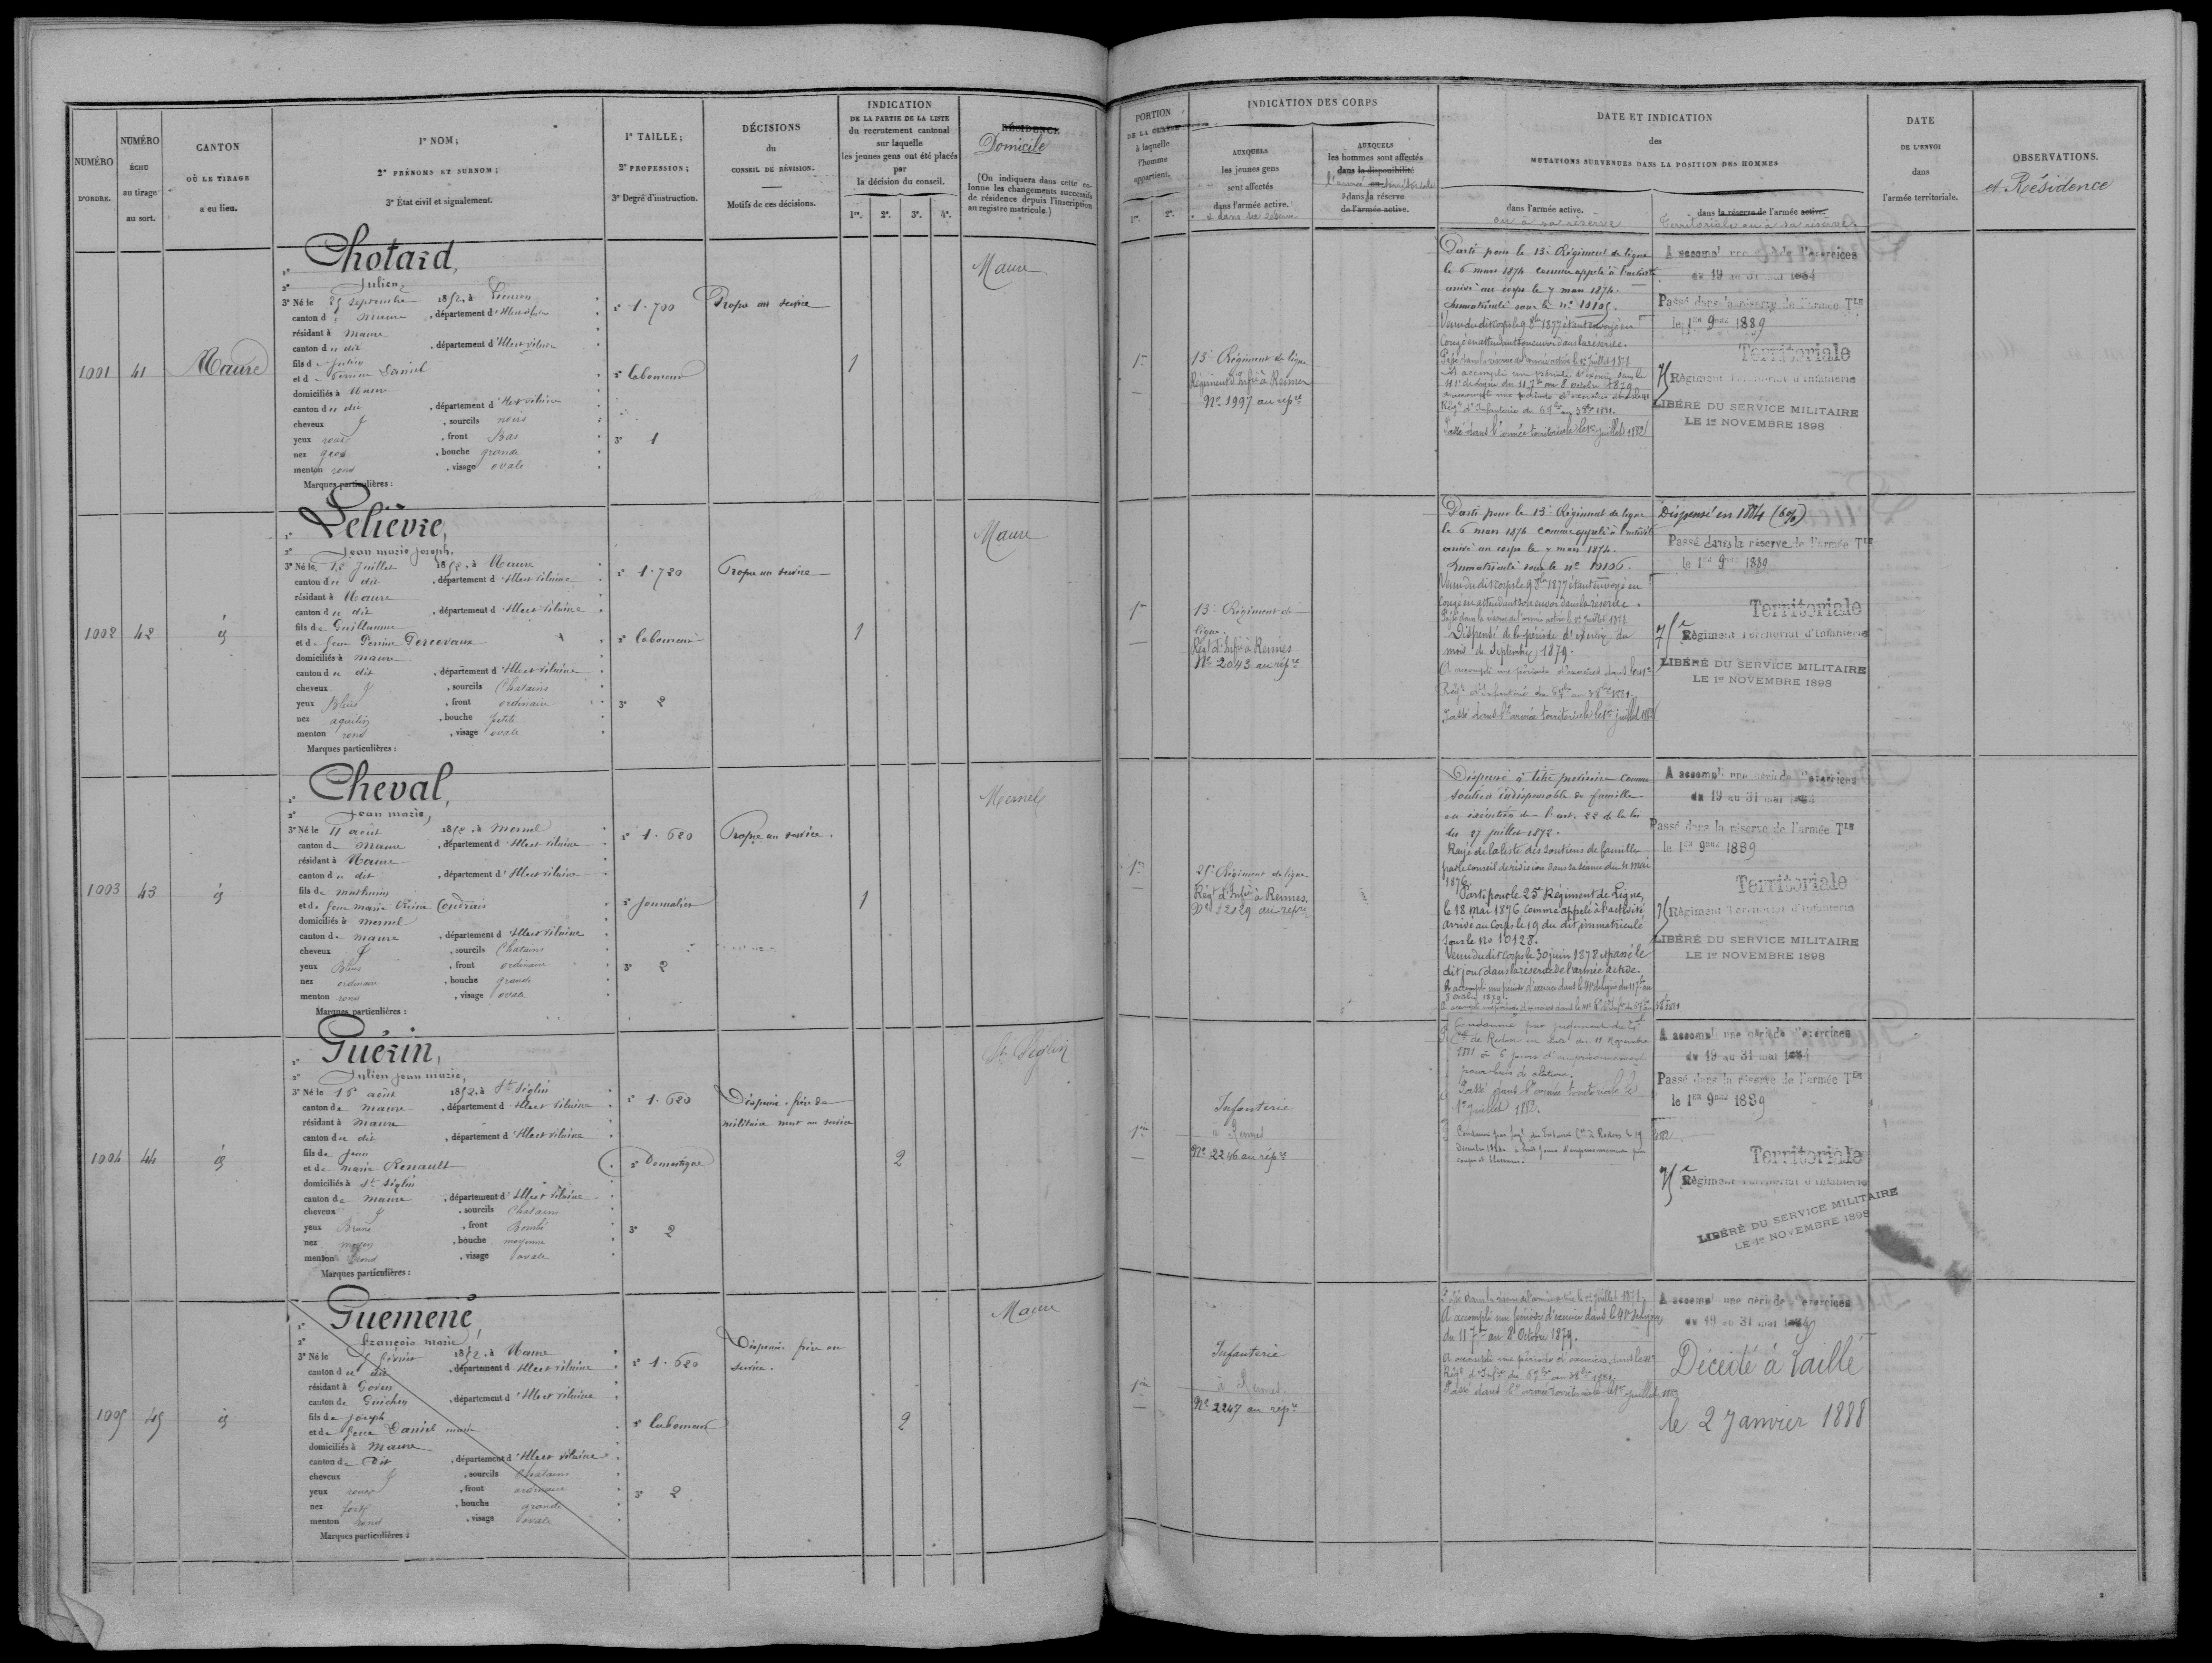 NUMÉRO
D'ORDRE.
NUMÉRO
ÉCHU
au tirage
au sort.
CANTON
OÙ LE TIRAGE
a eu lieu.
1º NOM;
2º PRÉNOMS ET SURNOM;
3º État civil et signalement.
1º TAILLE;
2º PROFESSION;
3º Degré d'instruction.
DÉCISIONS
du
CONSEIL DE RÉVISION.
Motifs de ces décisions.
INDICATION
DE LA PARTIE DE LA LISTE
du recrutement cantonal
sur laquelle
les jeunes gens ont été placés
par
la décision du conseil.
1re. 2e. 3e. 4e.
RÉSIDENCE
Domicile
(On indiquera dans cette co-
lonne les changements successifs
de résidence depuis l'inscription
au registre matricule.)
1001 41 Maure
Chotard,
Julien,
3º Né le 25 septembre 1852, à
canton d Maure, département d'Ille et Vilaine
résidant à Maure
canton du dit, département d'Ille et Vilaine
fils de Julien
et de Perrine Daniel
domiciliés à Maure
canton du dit, département d'Ille et Vilaine
cheveux, sourcils noirs
yeux roux, front Bas
nez gros, bouche grande
menton rond, visage ovale
Marques particulières :
1º 1.700
2º laboureur
3º 1
Propre au service
1
Maure
1002 42 id
Lelièvre,
Jean marie Joseph,
3º Né le 12 Juillet 1852, à Maure
canton du dit, département d'Ille et Vilaine
résidant à Maure
canton du dit, département d'Ille et Vilaine
fils de Guillaume
et de feue Perrine Percevaux
domiciliés à Maure
canton du dit, département d'Ille et Vilaine
cheveux, sourcils Chatains
yeux Bleus, front ordinaire
nez aquilin, bouche petite
menton rond, visage ovale
Marques particulières :
1º 1.720
2º laboureur
3º 2
Propre au service
1
Maure
1003 43 id
Cheval,
Jean marie,
3º Né le 11 août 1852, à Mernel
canton de Maure, département d'Ille et Vilaine
résidant à Maure
canton du dit, département d'Ille et Vilaine
fils de Mathurin
et de feue marie Reine Coudrais
domiciliés à Mernel
canton de Maure, département d'Ille et Vilaine
cheveux, sourcils Chatains
yeux Bleus, front ordinaire
nez ordinaire, bouche grande
menton rond, visage ovale
Marques particulières :
1º 1.620
2º Journalier
3º 2
Propre au service.
1
Mernel
1004 44 id
Guérin,
Julien Jean marie,
3º Né le 16 août 1852, à St Séglin
canton de Maure, département d'Ille et Vilaine
résidant à Maure
canton du dit, département d'Ille et Vilaine
fils de Jean
et de Marie Renault
domiciliés à St Séglin
canton de Maure, département d'Ille et Vilaine
cheveux, sourcils Chatains
yeux Bruns, front Bombé
nez moyen, bouche moyenne
menton rond, visage ovale
Marques particulières :
1º 1.620
2º Domestique
3º 2
Dispensé. frère de
militaire mort au service
2
St Séglin
1005 45 id
Guemené,
François marie,
3º Né le 5 février 1852, à Maure
canton du dit, département d'Ille et Vilaine
résidant à Goven
canton de Guichen, département d'Ille et Vilaine
fils de Joseph
et de feue Daniel marie
domiciliés à Maure
canton du Dit, département d'Ille et Vilaine
cheveux, sourcils Chatains
yeux roux, front ordinaire
nez fort, bouche grande
menton rond, visage ovale
Marques particulières :
1º 1.620
2º laboureur
3º 2
Dispensé. frère au
service.
2
Maure
PORTION
DE LA CLASSE
à laquelle
l'homme
appartient.
1re. 2e.
INDICATION DES CORPS
AUXQUELS
les jeunes gens
sont affectés
dans l'armée active.
et dans sa réserve
AUXQUELS
les hommes sont affectés
dans la disponibilité
l'armée territoriale
dans la réserve
de l'armée active.
DATE ET INDICATION
des
MUTATIONS SURVENUES DANS LA POSITION DES HOMMES
dans l'armée active.
ou à sa réserve
dans la réserve de l'armée active.
Territoriale ou à sa réserve
DATE
DE L'ENVOI
dans
l'armée territoriale.
OBSERVATIONS.
et Résidence
1re
13e Régiment de ligne
Régiment d'Infie à Rennes
No 1997 au répre
Parti pour le 13e Régiment de ligne
le 6 mars 1874 comme appelé à l'activité
arrivé au corps le 7 mars 1874.
Immatriculé sous le no 10105.
Venu du dit corps le 9 8bre 1877 étant envoyé en
congé en attendant son envoi dans la réserve.
Passé dans la réserve de l'armée active le 1er Juillet 1878
A accompli une période d'exercices dans le
41e de ligne du 11 7bre au 8 octobre 1879
a accompli une période d'exercices dans le 41e
Régt d'Infanterie du 6 7bre au 3 8bre 1881.
Passé dans l'armée territoriale le 1er juillet 1882
A accompli une période d'exercices
du 19 au 31 mai 1884
Passé dans la réserve de l'armée Tle
le 1er 9bre 1889
Territoriale
75 Régiment Territorial d'Infanterie
LIBÉRÉ DU SERVICE MILITAIRE
LE 1er NOVEMBRE 1898
1re
13e Régiment de
ligne.
Régt d'Infie à Rennes
No 2043 au répre
Parti pour le 13e Régiment de ligne
le 6 mars 1874 comme appelé à l'activité
arrivé au corps le 7 mars 1874.
Immatriculé sous le no 10106.
Venu du dit corps le 9 8bre 1877 étant envoyé en
congé en attendant son envoi dans la réserve.
Passé dans la réserve de l'armée active le 1er Juillet 1878
Dispensé de la période d'exercice du
mois de Septembre 1879.
A accompli une période d'exercices dans le 41e
Régt d'Infanterie du 6 7bre au 3 8bre 1881.
Passé dans l'armée territoriale le 1er juillet 1882
Dispensé en 1884 (6%)
Passé dans la réserve de l'armée Tle
le 1er 9bre 1889
Territoriale
75e Régiment Territorial d'Infanterie
LIBÉRÉ DU SERVICE MILITAIRE
LE 1er NOVEMBRE 1898
1re
25e Régiment de ligne
Régt d'Infie à Rennes
No 2129 au répre
Dispensé à titre provisoire comme
soutien indispensable de famille
en exécution de l'art. 22 de la loi
du 27 juillet 1872.
Rayé de la liste des soutiens de famille
par le conseil de révision dans sa séance du 4 mai
1876
Parti pour le 25e Régiment de Ligne,
le 18 mai 1876 comme appelé à l'activité
arrivé au Corps le 19 du dit, immatriculé
sous le No 10128.
Venu du dit corps le 30 juin 1878 et passé le
dit jour dans la réserve de l'armée active
A accompli une période d'exercices dans le 41e de ligne du 11 7bre au
8 octobre 1879.
A accompli une période d'exercices dans le 41e Rt d'Infie du 6 7bre au 3 8bre 1881
A accompli une période d'exercices
du 19 au 31 mai 1884
Passé dans la réserve de l'armée Tle
le 1er 9bre 1889
Territoriale
75 Régiment Territorial d'Infanterie
LIBÉRÉ DU SERVICE MILITAIRE
LE 1er NOVEMBRE 1898
1re
Infanterie
à Rennes
No 2246 au répre
Condamné par jugement du Tal
Cel de Redon en date du 11 novembre
1881 à 6 jours d'emprisonnement
pour bris de clôture.
Passé dans l'armée territoriale le
1er juillet 1882.
Condamné par jugt du Tribunal Cel de Redon le 19
décembre 1882 à huit jours d'emprisonnement pour
coups et blessures.
A accompli une période d'exercices
du 19 au 31 mai 1884
Passé dans la réserve de l'armée Tle
le 1er 9bre 1889
Territoriale
75e Régiment Territorial d'Infanterie
LIBÉRÉ DU SERVICE MILITAIRE
LE 1er NOVEMBRE 1898
1re
Infanterie
à Rennes
No 2247 au répre
Passé dans la réserve de l'armée active le 1er Juillet 1878,
A accompli une période d'exercices dans le 41e de ligne
du 11 7bre au 8 Octobre 1879.
A accompli une période d'exercices dans le 41e
Régt d'Infie du 6 7bre au 3 8bre 1881
Passé dans l'armée territoriale le 1er juillet 1882
A accompli une période d'exercices
du 19 au 31 mai 1884
Décédé à Laillé
le 2 Janvier 1888